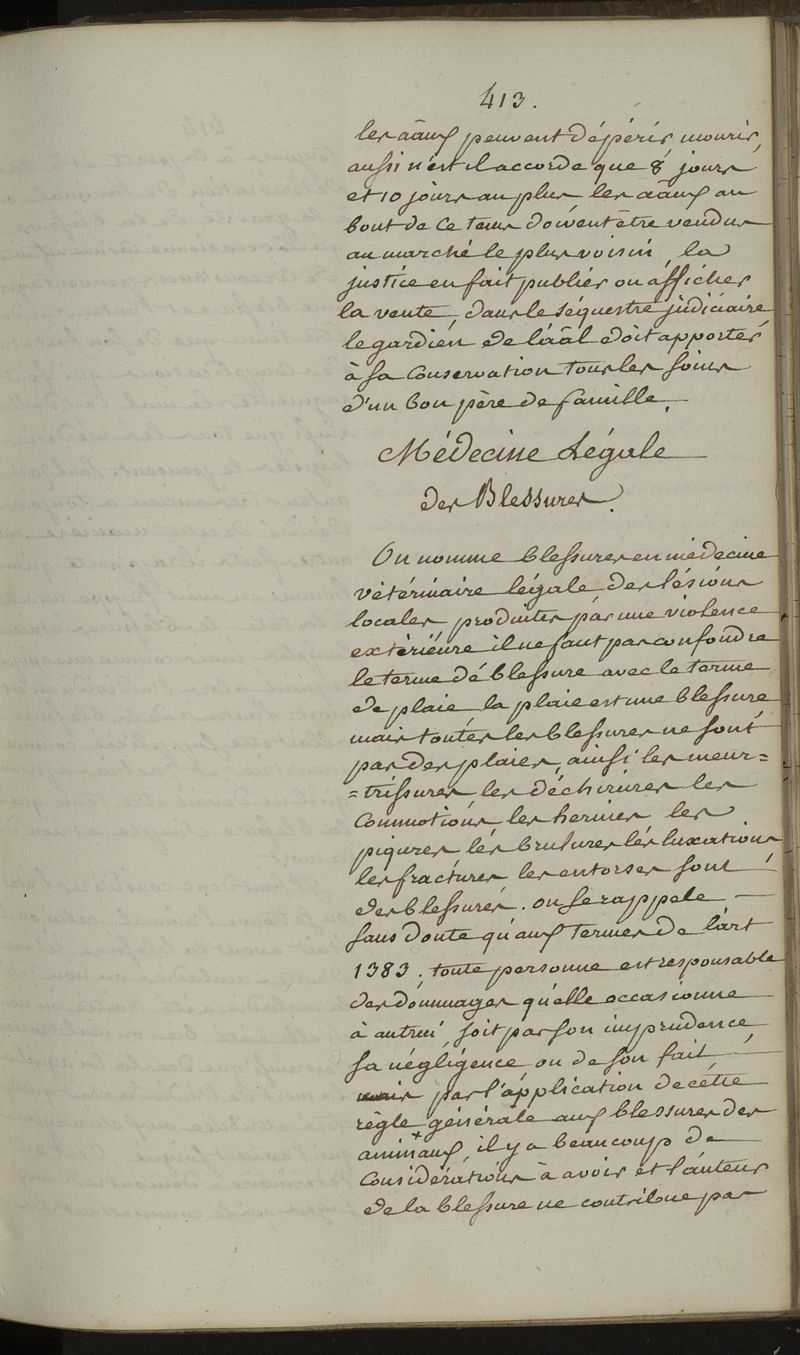 413.
les aãux peuvent dépérir, mourir,
aussi n'est il accordé que 8 jours
et 10 jours au plus les aãux au
bout de ce tems doivent être vendus
au marché le plus voisin, la
justice en fait publier ou afficher
la vente, dans le séquestre judiciaire
le gardien de l'aãl doit apporter
à sa conservation tous les soins
d'un bon père de famille.
Médecine Légale
des Blessures.
On nomme blessures en médecine
vétérinaire légale des lésions
locales produites par une violence
extérieure il ne faut pas confondre
le terme dé blessure avec le terme
de plaie la plaie est une blessure
mais toutes les blessures ne sont
pas des plaies, ainsi les meur=
=trissures les déchirures les
commotions les hernies les
piqures lés brulures lés luxations
les fractures les entorses sont
des blessures. on se rappele
sans doute qu'aux termes de l'art
1383. toute personne est responsable
des dommages qu'elle occasionne
à autrui soit par son imprudence
sa négligence ou de son fait
par l'application de cétte
règle générale aux blessures des
aminaux, il y a beaucoup de
considérations à avoir et l'auteur
de la blessure ne contribue pas